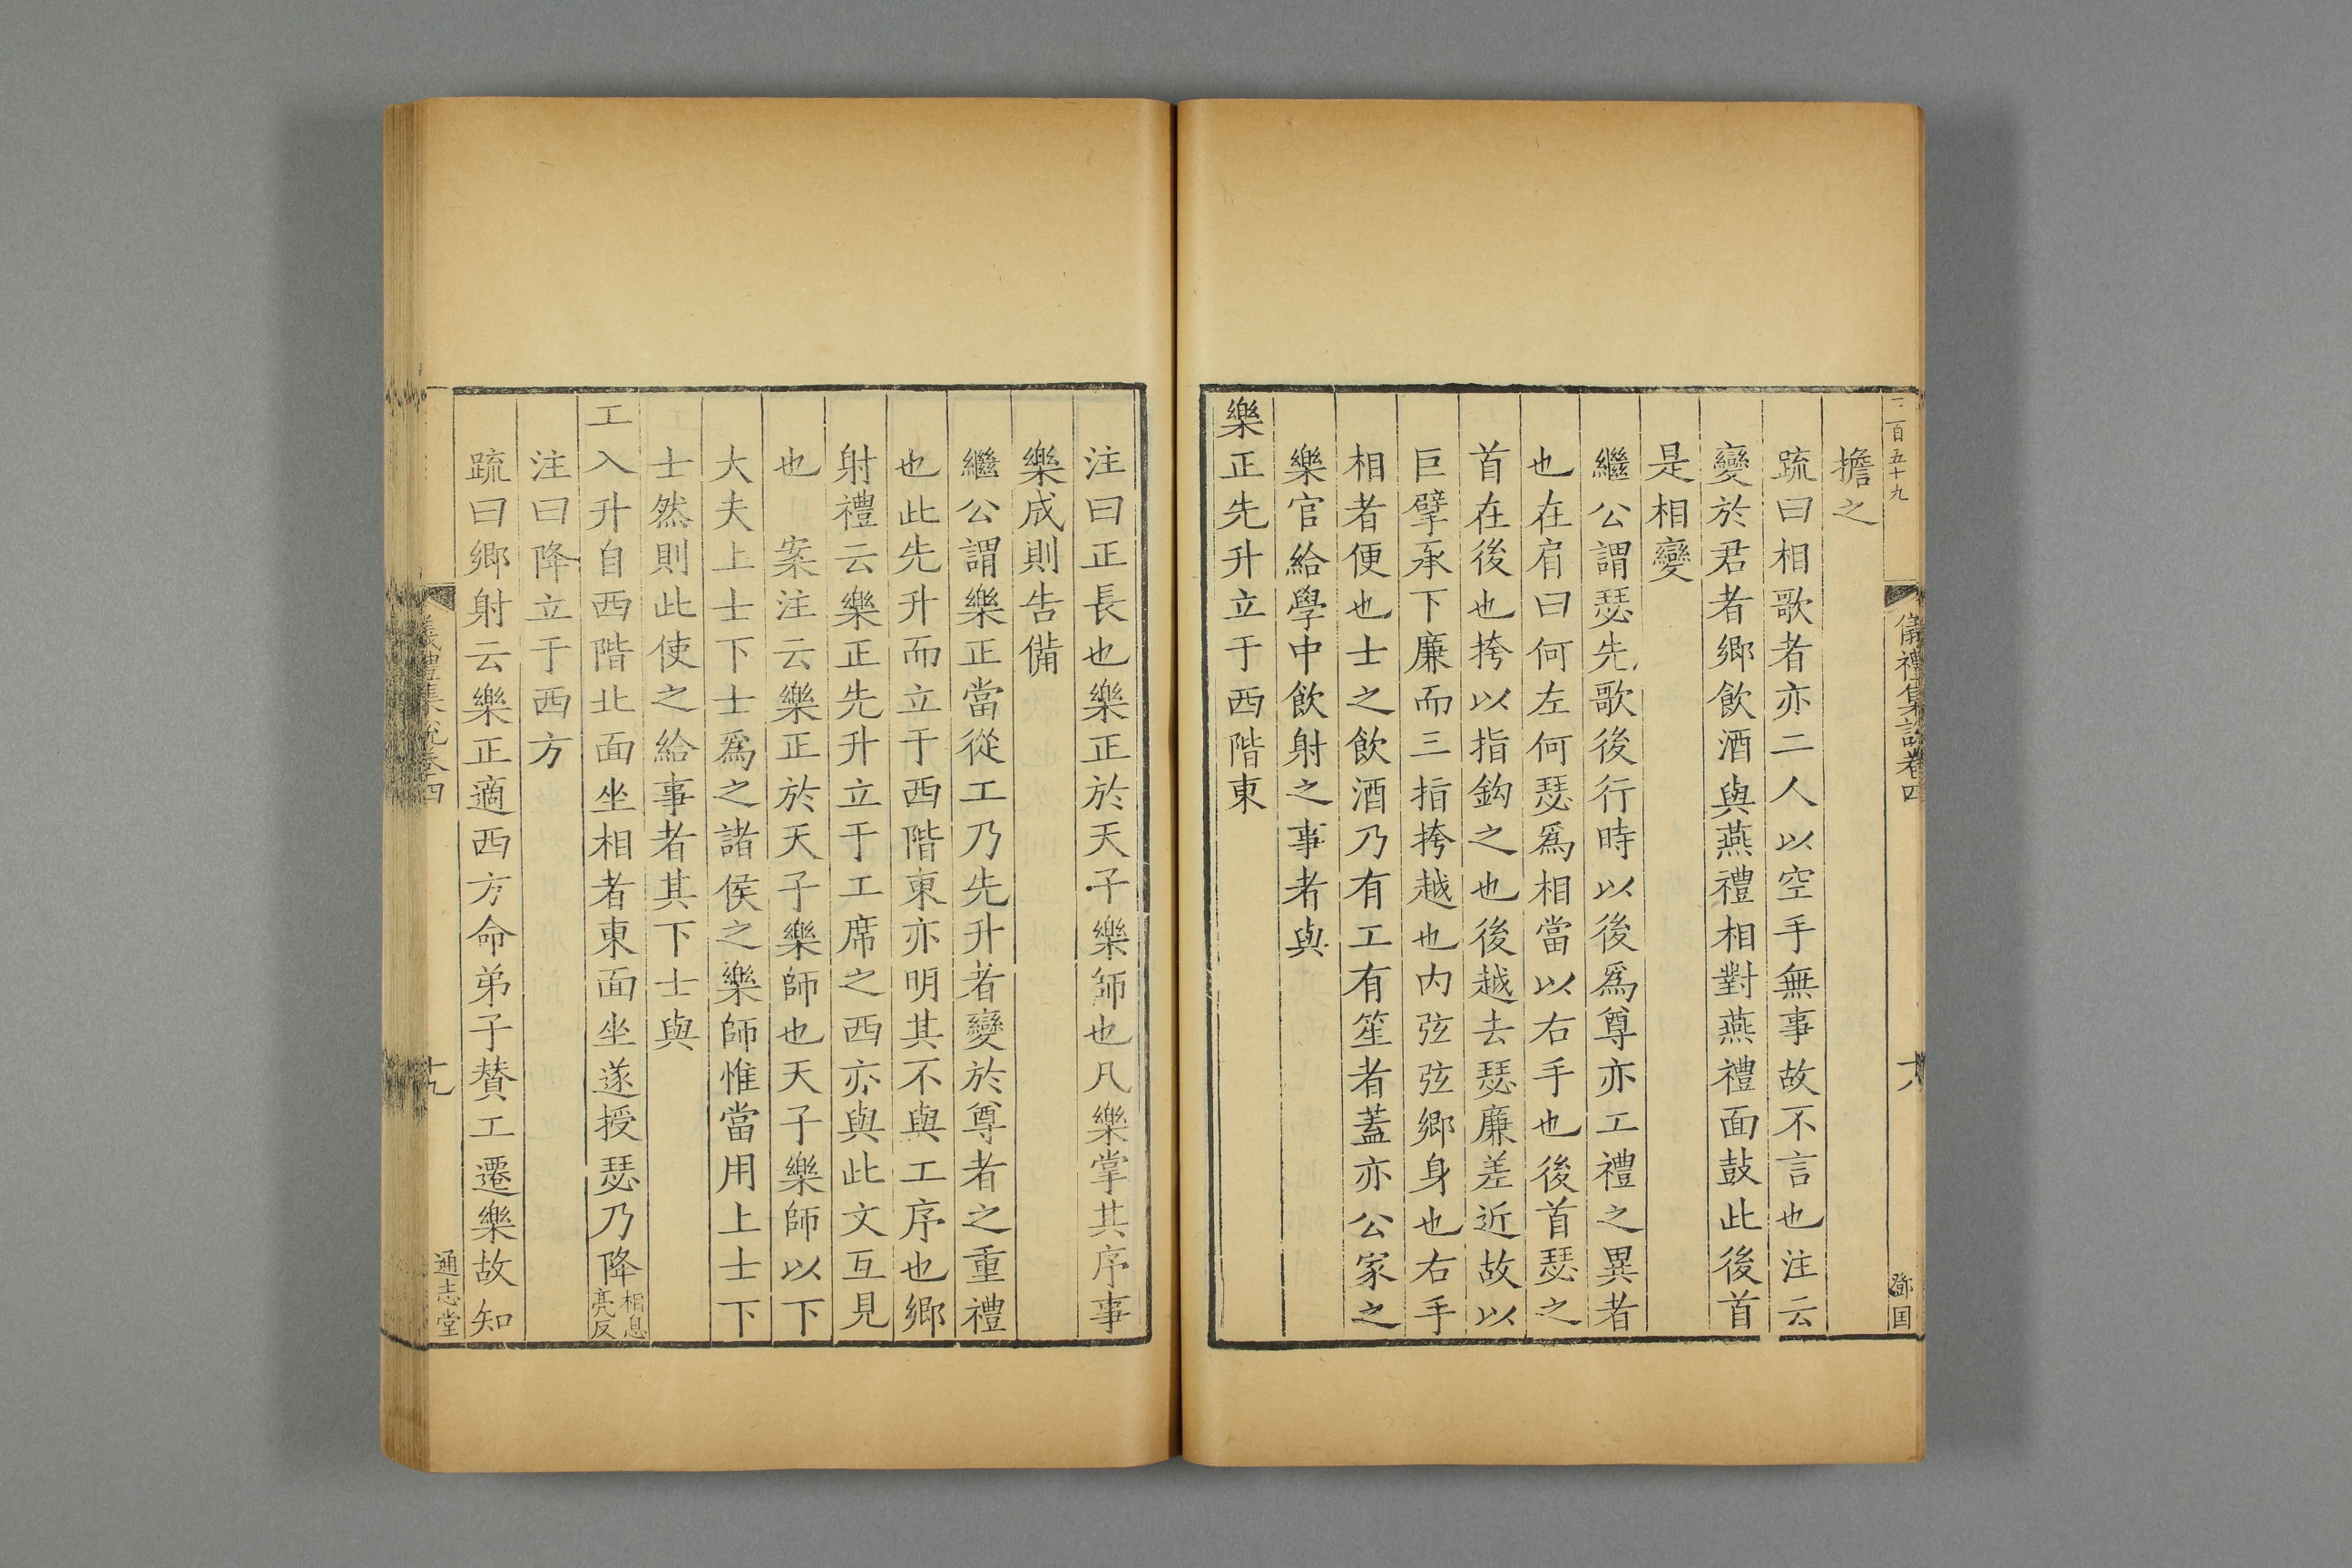 三百五十九
儀禮集說卷四
擔之
疏曰相歌者亦二人以空手無事故不言也注云
變於君者鄉飲酒與燕禮相對燕禮面鼓此後首
是相變
繼公謂瑟先歌後行時以後爲尊亦工禮之異者
也在肩曰何左何瑟爲相當以右手也後首瑟之
首在後也挎以指鈎之也後越去瑟廉差近故以
巨擘承下廉而三指挎越也内弦弦鄉身也右手
相者便也士之飲酒乃有工有笙者蓋亦公家之
樂官給學中飲射之事者與
樂正先升立于西階東
注曰正長也樂正於天子樂師也凡樂掌其序事
樂成則告備
繼公謂樂正當從工乃先升者變於尊者之重禮
也此先升而立于西階東亦明其不與工序也鄉
射禮云樂正先升立于工席之西亦與此文互見
也 案注云樂正於天子樂師也天子樂師以下
大夫上士下士爲之諸侯之樂師惟當用上士下
士然則此使之給事者其下士與
工入升自西階北面坐相者東面坐遂授瑟乃降相息亮反
注曰降立于西方
疏曰鄉射云樂正適西方命弟子贊工遷樂故知
儀禮集說卷四
十九
通志堂